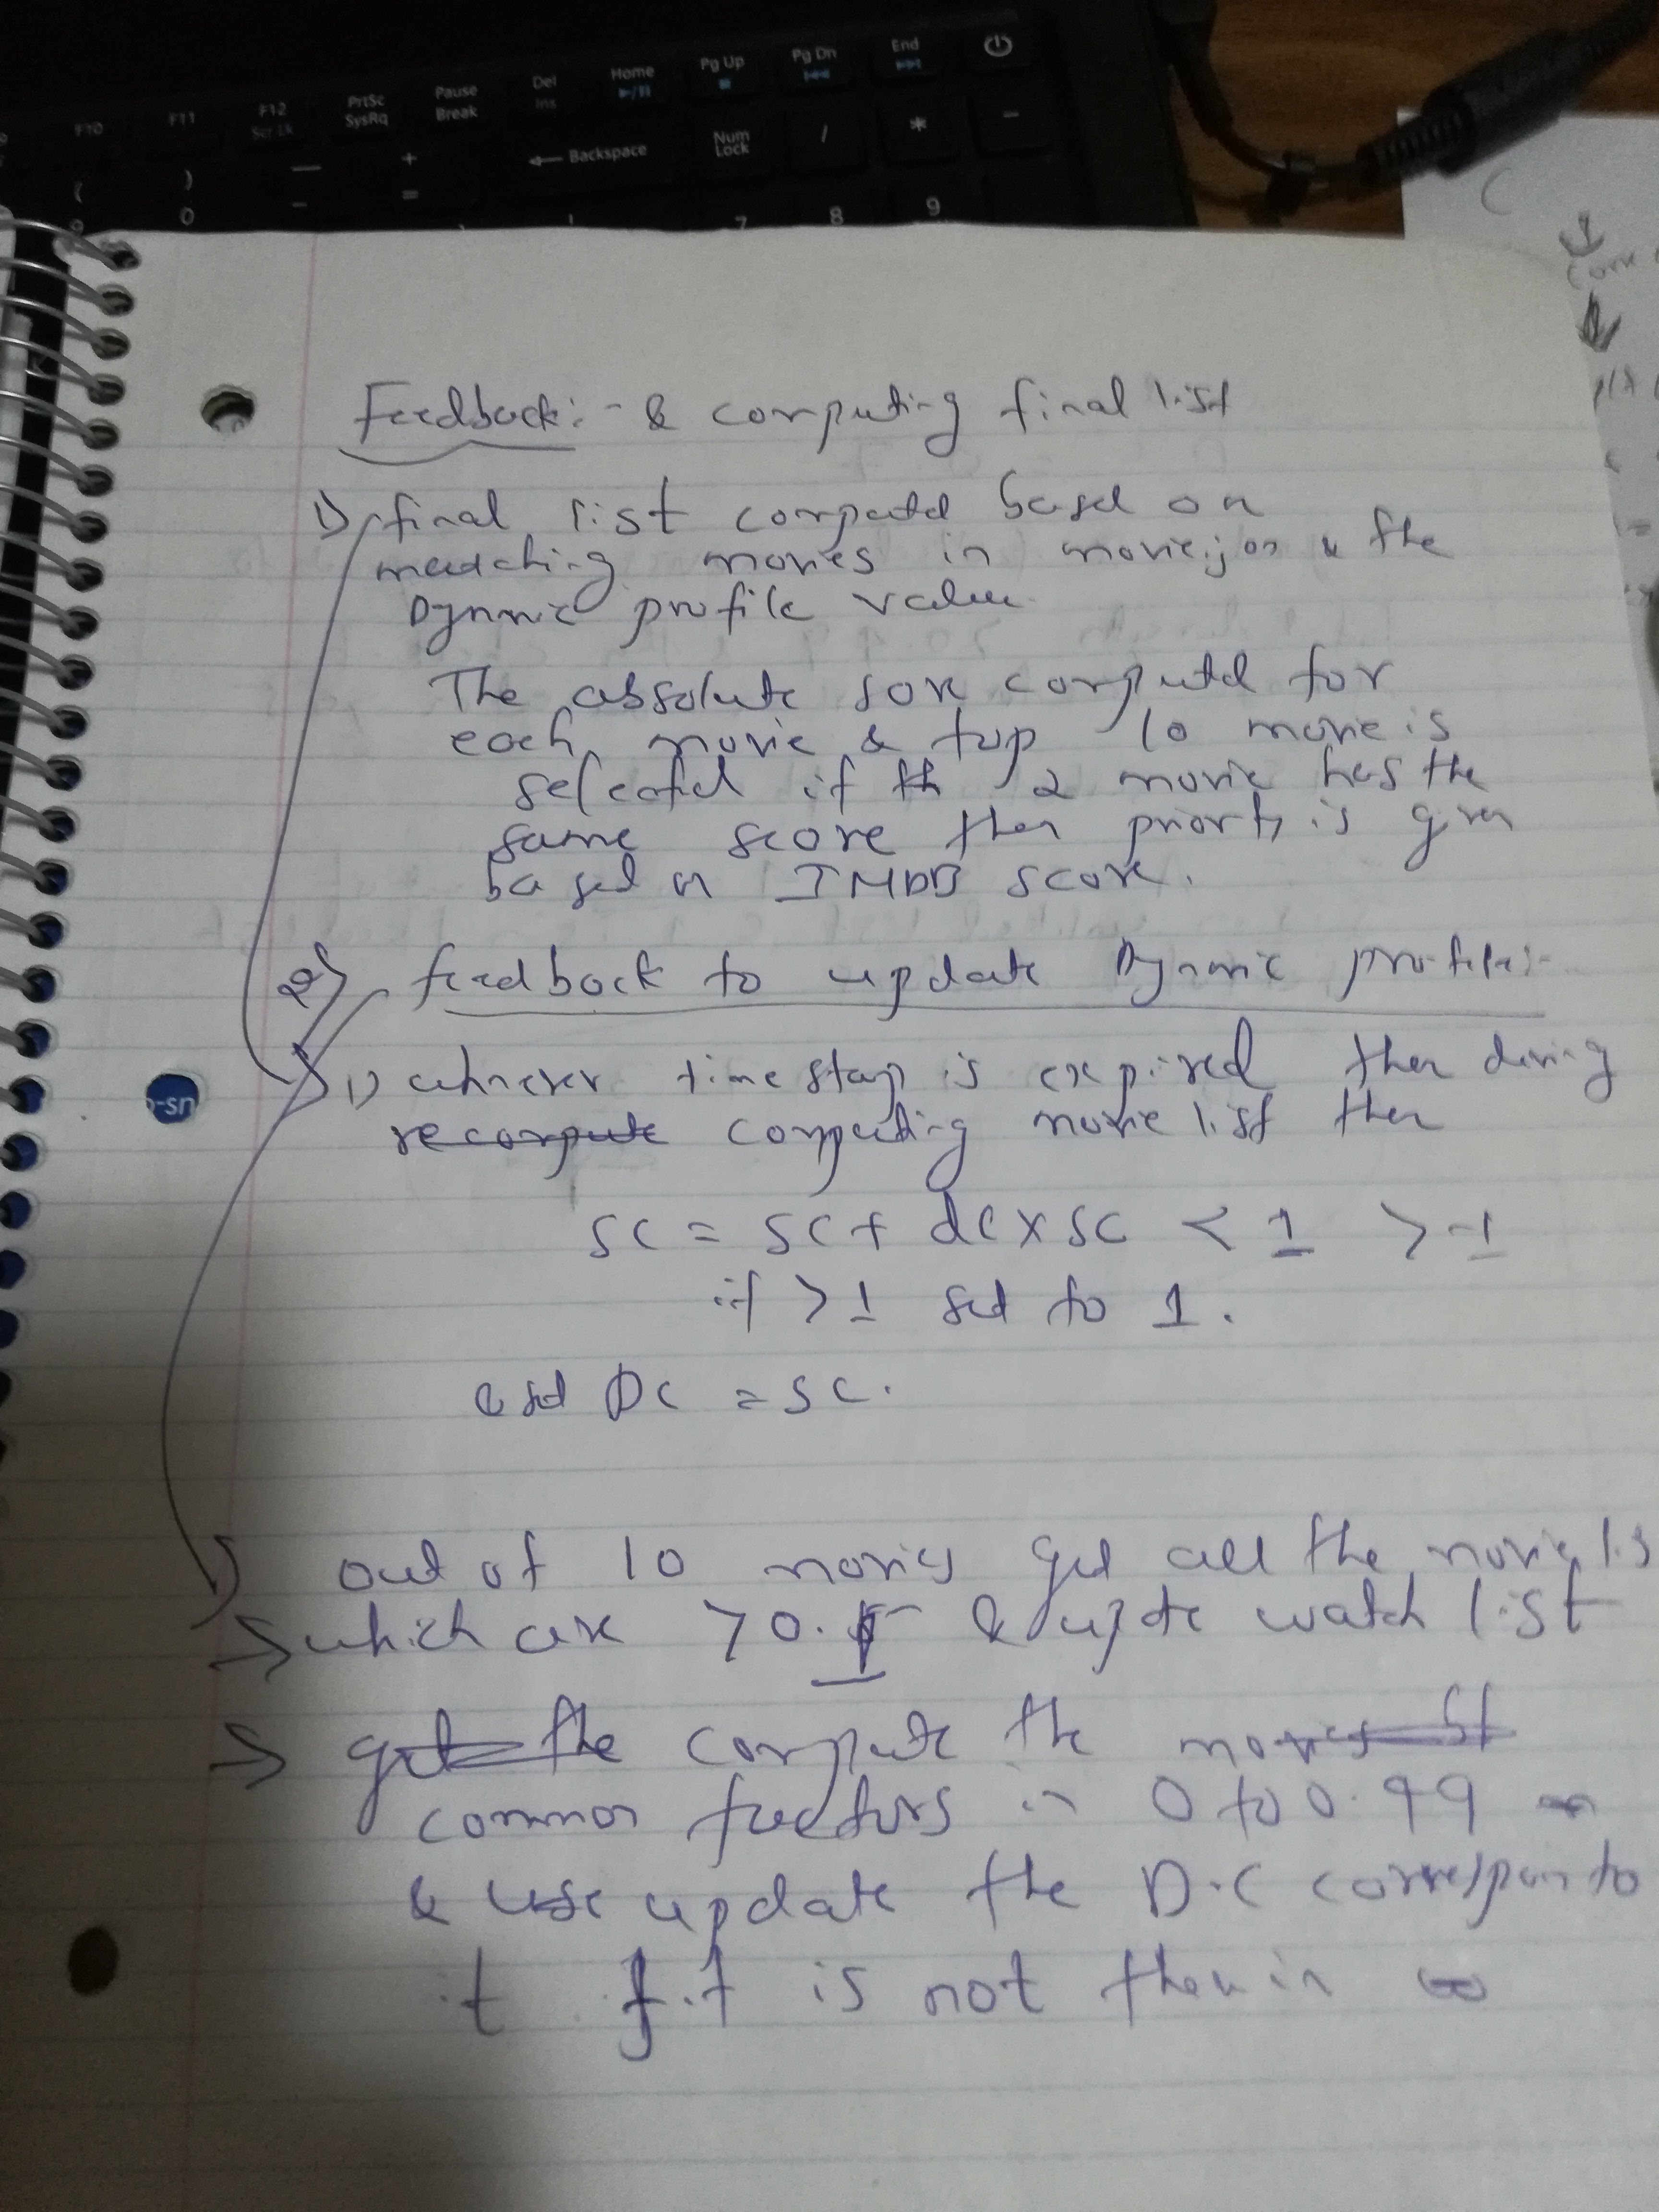 F10 F11 F12 PrtSc Pause Del Home Pg Up Pg Dn End
Scr Lk SysRq Break Ins
Backspace Num Lock / * -
( ) — + =
9 0 - 7 8 9
Feedback :- & computing final list
1) final list computed based on
matching movies in movie.json & the
Dynmic profile value
The absolute sore computed for
each movie & top 10 movie is
selected if th 2 movie has the
same score then priority is given
based on IMDB score.
2) feedback to update Dynamic profile:-
1) whenever timestap is expired then during
recompute computing movie list then
SC = SC + dc x SC < 1 > -1
if > 1 set to 1.
& set DC = SC.
out of 10 movies get all the movie lis
→ which are > 0. & update watch list
→ get the compute the movies
common factors in 0 to 0.99
& use update the D.C correspon to
it is not then in
-sn